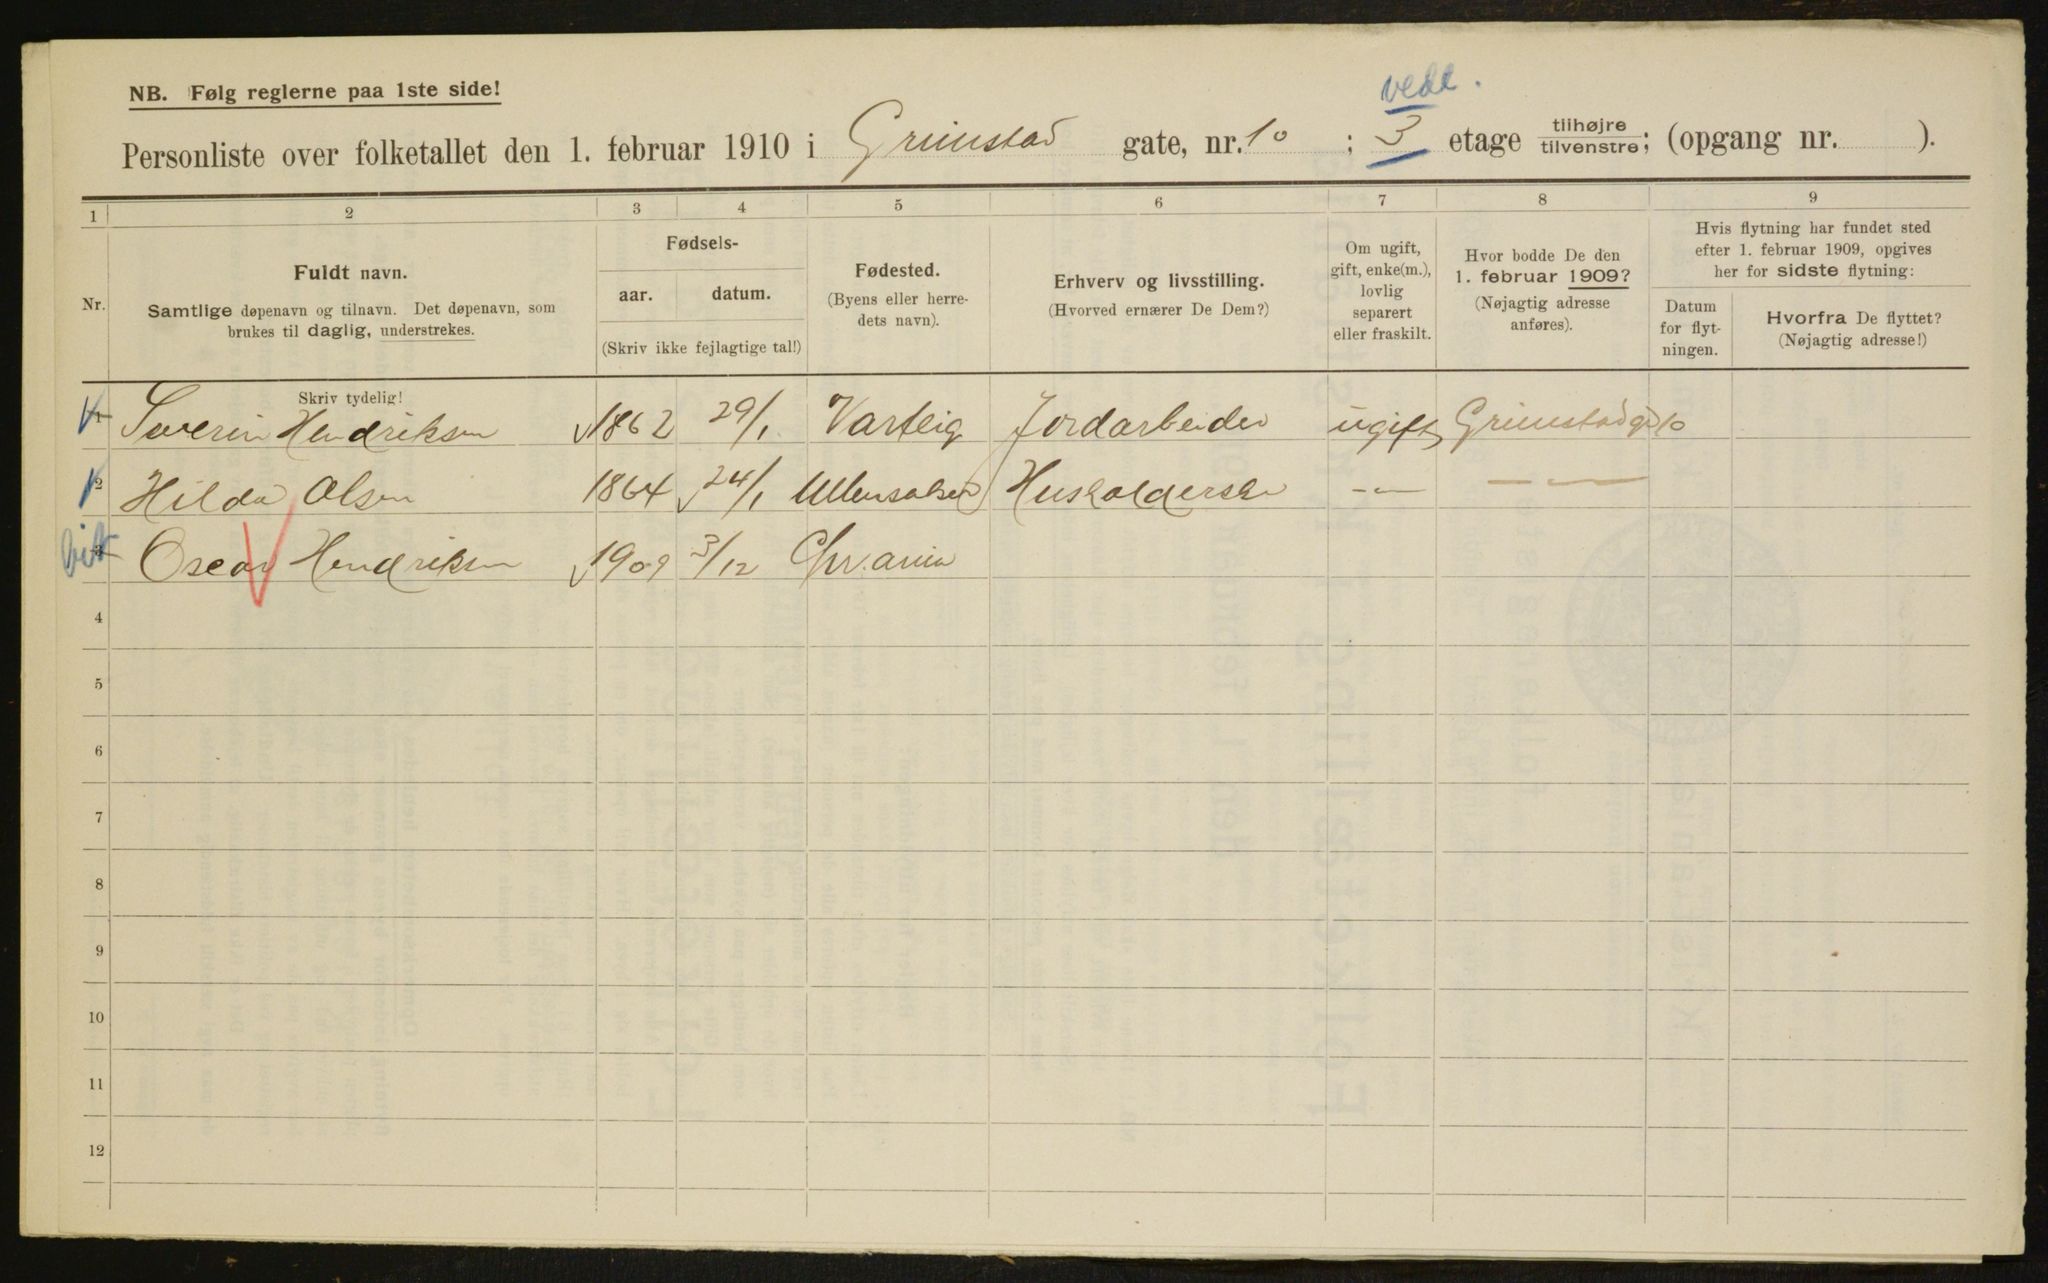 NB. Følg reglerne paa 1ste side!
vedl.
Personliste over folketallet den 1. februar 1910 i Grimstad gate, nr. 10 ; 3 etage tilhøjre tilvenstre; (opgang nr. ).
1 2 3 4 5 6 7 8 9
Nr.
Fuldt navn.
Samtlige døpenavn og tilnavn. Det døpenavn, som
brukes til daglig, understrekes.
Fødsels-
aar. datum.
(Skriv ikke fejlagtige tal!)
Fødested.
(Byens eller herre-
dets navn).
Erhverv og livsstilling.
(Hvorved ernærer De Dem?)
Om ugift,
gift, enke(m.),
lovlig
separert
eller fraskilt.
Hvor bodde De den
1. februar 1909?
(Nøjagtig adresse
anføres).
Hvis flytning har fundet sted
efter 1. februar 1909, opgives
her for sidste flytning:
Datum
for flyt-
ningen.
Hvorfra De flyttet?
(Nøjagtig adresse!)
Skriv tydelig!
1 Severin Hendriksen 1862 29/1 Varteig Jordarbeider ugift Grimstadgd 10
2 Hilda Olsen 1864 24/1 Ullensaker Husholderske -"- -"-
3 Oscar Hendriksen 1909 3/12 Chr.ania
4
5
6
7
8
9
10
11
12